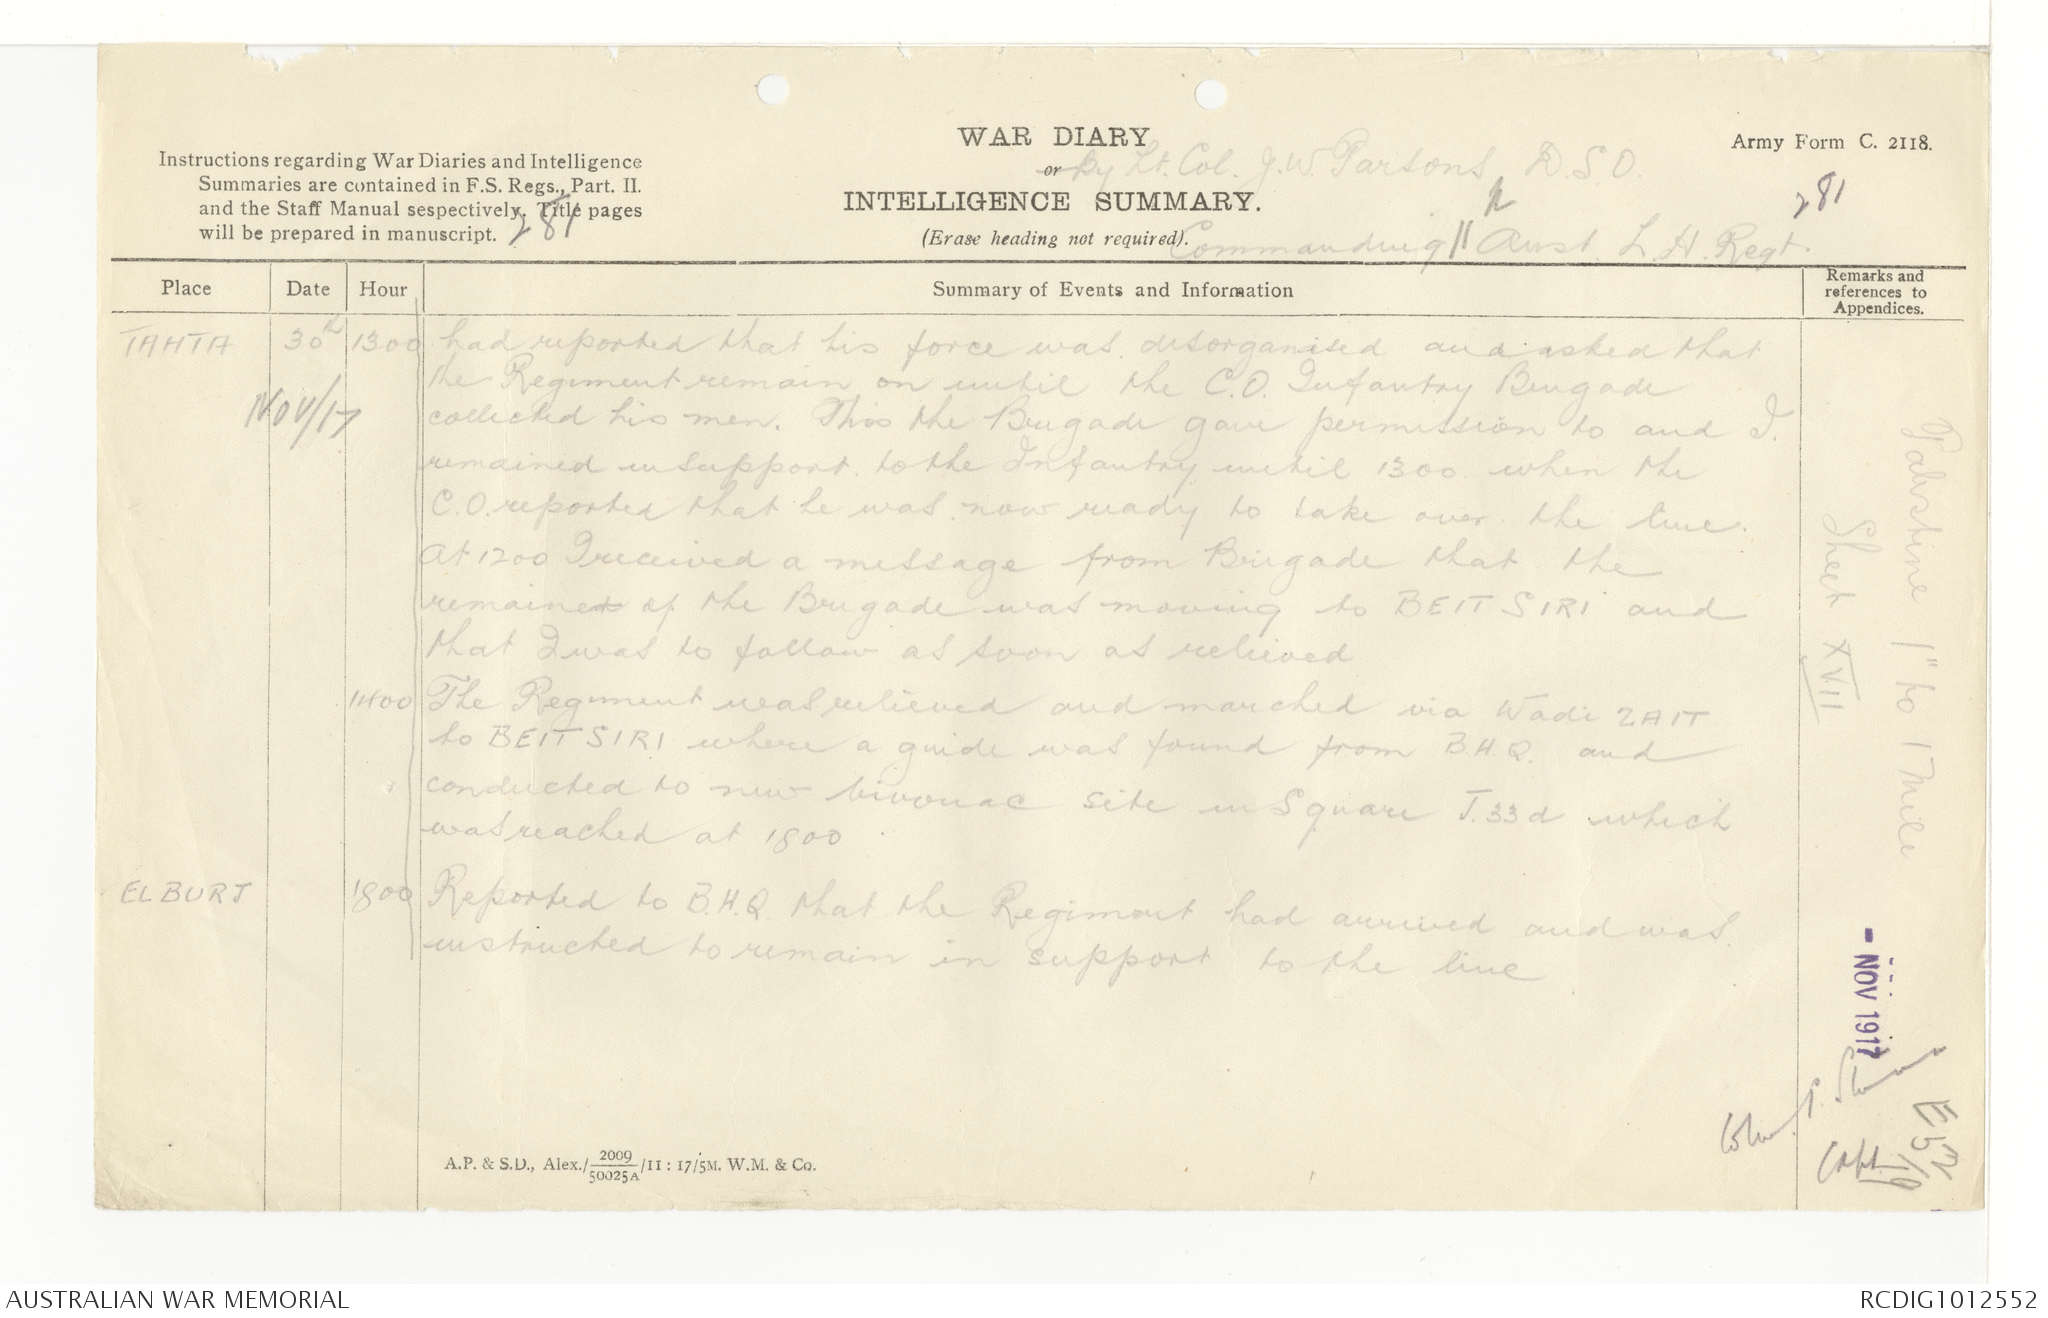 WAR DIARY
or by Lt. Col. J.W. Parsons, D.S.O.
INTELLIGENCE SUMMARY.
(Erase heading not required). Commanding 11 Aust. L.H. Regt.
Army Form C. 2118.
281
Instructions regarding War Diaries and Intelligence
Summaries are contained in F.S. Regs., Part. II.
and the Staff Manual sespectively. Title pages
will be prepared in manuscript.
281
Place Date Hour Summary of Events and Information Remarks and references to Appendices.
TAHTA 30th 1300 had reported that his force was disorganised and asked that
Nov/17 the Regiment remain on until the C.O. Infantry Brigade
collected his men. This the Brigade gave permission to and I
remained in support to the Infantry until 1300 when the
C.O. reported that he was now ready to take over the line.
At 1200 I received a message from Brigade that the
remained of the Brigade was moving to BEIT SIRI and
that I was to follow as soon as relieved
1400 The Regiment was relieved and marched via Wadi ZAIT
to BEIT SIRI where a guide was found from B.H.Q. and
conducted to new bivouac site in Square T.33d which
was reached at 1800
EL BURJ 1800 Reported to B.H.Q. that the Regiment had arrived and was
instructed to remain in support to the line
Palestine 1" to 1 Mile
Sheet XVII
- NOV 1917
Capt.
A.P. & S.D., Alex./2009/50025A/11 : 17/5M. W.M. & Co.
AUSTRALIAN WAR MEMORIAL
RCDIG1012552